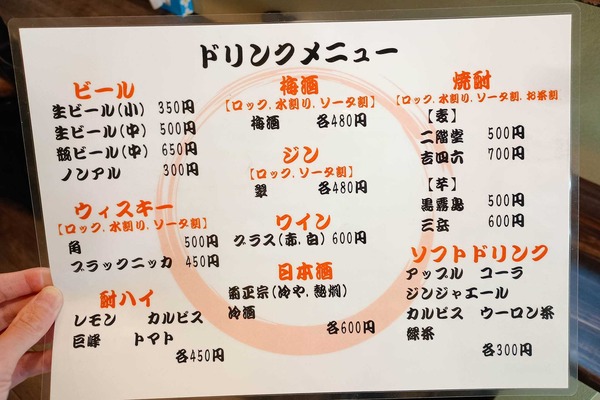 ドリンクメニュー
ビール
生ビール(小) 350円
生ビール(中) 500円
瓶ビール(中) 650円
ノンアル 300円
ウィスキー
【ロック,水割り,ソーダ割】
角 500円
ブラックニッカ 450円
酎ハイ
レモン カルピス
巨峰 トマト
各450円
梅酒
【ロック,水割り,ソーダ割】
梅酒 各480円
ジン
【ロック,ソーダ割】
翠 各480円
ワイン
グラス(赤,白) 600円
日本酒
菊正宗(冷や,熱燗)
冷酒
各600円
焼酎
【ロック,水割り,ソーダ割,お茶割】
【麦】
二階堂 500円
吉四六 700円
【芋】
黒霧島 500円
三岳 600円
ソフトドリンク
アップル コーラ
ジンジャエール
カルピス ウーロン茶
緑茶
各300円